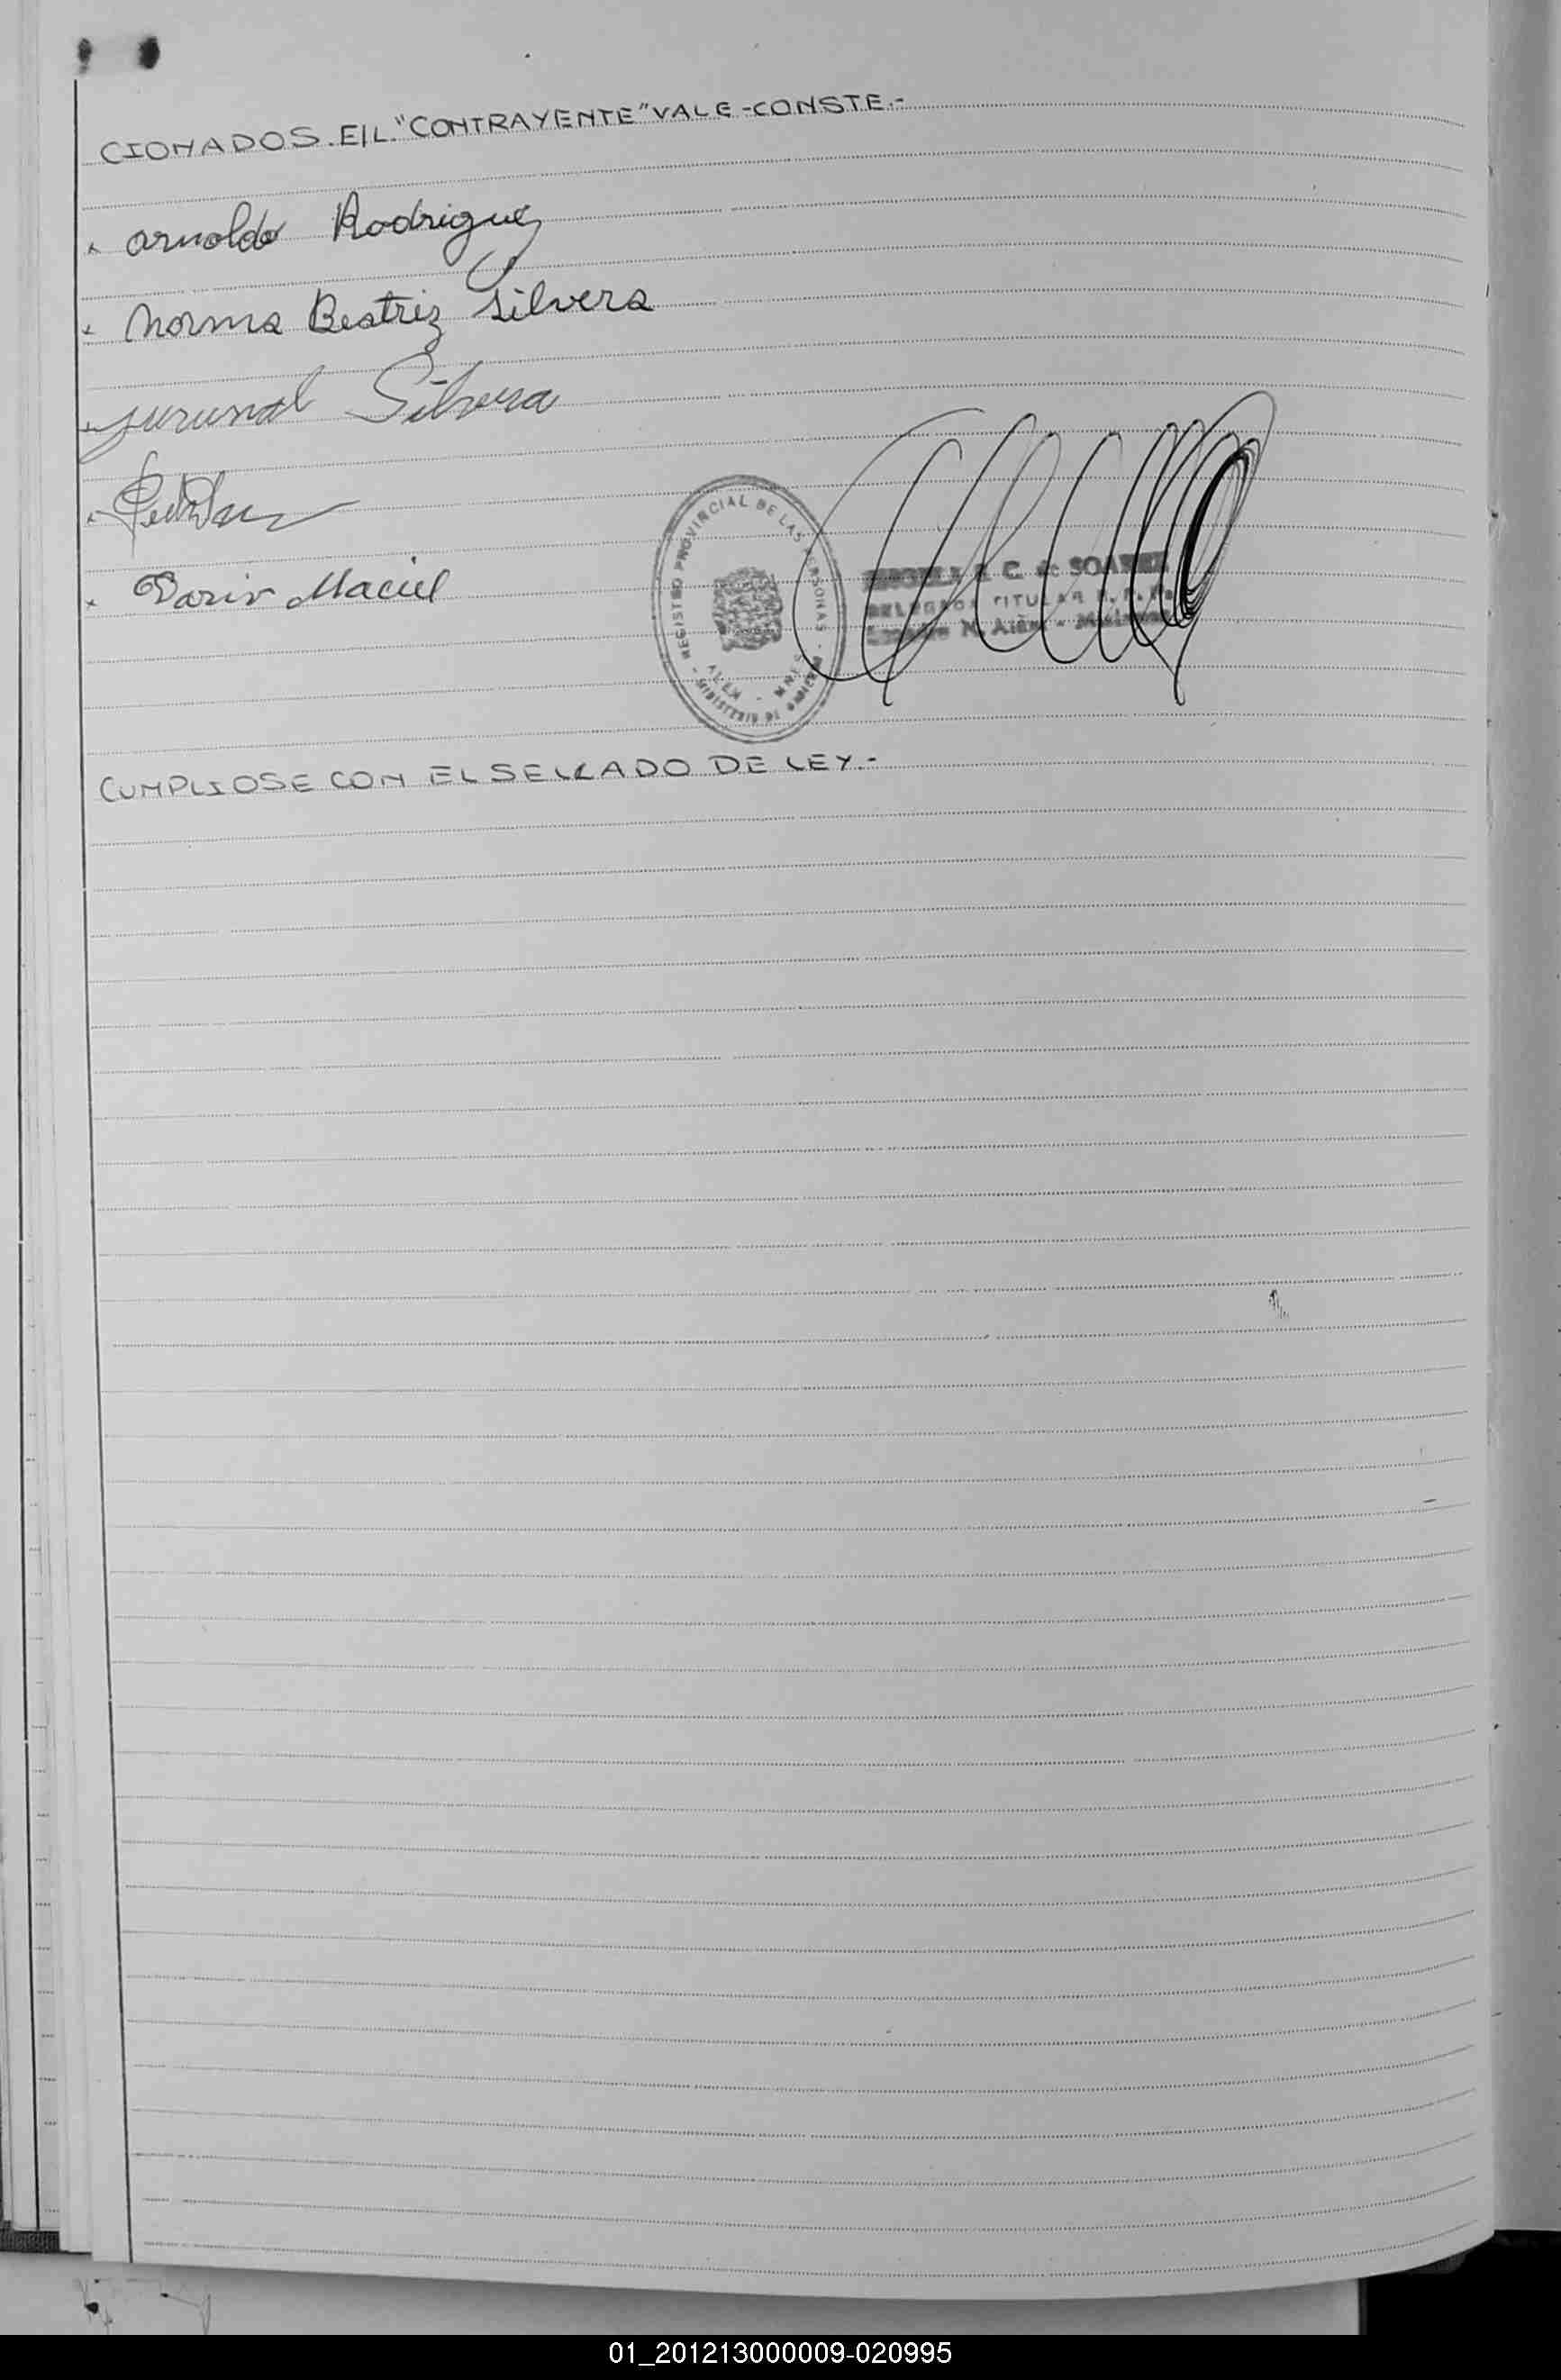 CIONADOS. E/L. "CONTRAYENTE" VALE - CONSTE.-
Arnoldo Rodriguez
Norma Beatriz Silvera
Silvera
Dario Maciel
REGISTRO PROVINCIAL DE LAS PERSONAS
C. de SOAREZ
DELEGADA TITULAR
N. Alem - Misiones
CUMPLIOSE CON EL SELLADO DE LEY.-
01_201213000009-020995